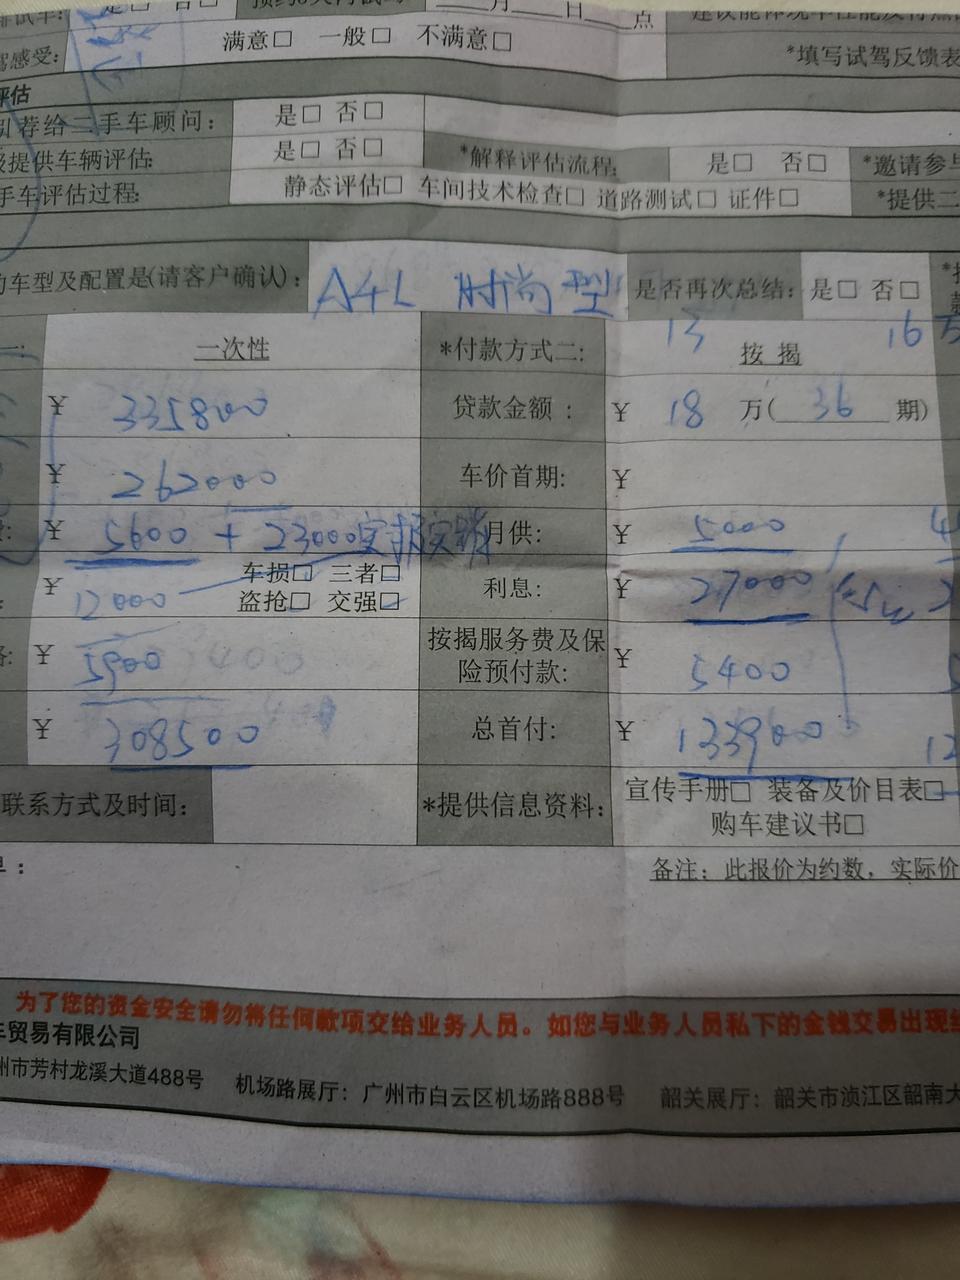 排试车: 是□ 否□ 月 日 点
驾感受: 满意□ 一般□ 不满意□ *填写试驾反馈表
评估
引荐给二手车顾问: 是□ 否□
及提供车辆评估: 是□ 否□ *解释评估流程: 是□ 否□ *邀请参与
手车评估过程: 静态评估□ 车间技术检查□ 道路测试□ 证件□ *提供二
车型及配置是(请客户确认): A4L 时尚型 是否再次总结: 是□ 否□
一次性 *付款方式二: 13 按揭 16万
¥ 335800 贷款金额: ¥ 18 万( 36 期)
¥ 262000 车价首期: ¥
¥ 5600 + 23000实报实销 月供: ¥ 5000
¥ 12000 车损□ 三者□ 盗抢□ 交强□ 利息: ¥ 27000
¥ 5900 按揭服务费及保险预付款: ¥ 5400
¥ 308500 总首付: ¥ 133900
联系方式及时间: *提供信息资料: 宣传手册□ 装备及价目表□
购车建议书□
备注: 此报价为约数, 实际价
为了您的资金安全请勿将任何款项交给业务人员。如您与业务人员私下的金钱交易出现
车贸易有限公司
州市芳村龙溪大道488号 机场路展厅: 广州市白云区机场路888号 韶关展厅: 韶关市浈江区韶南大